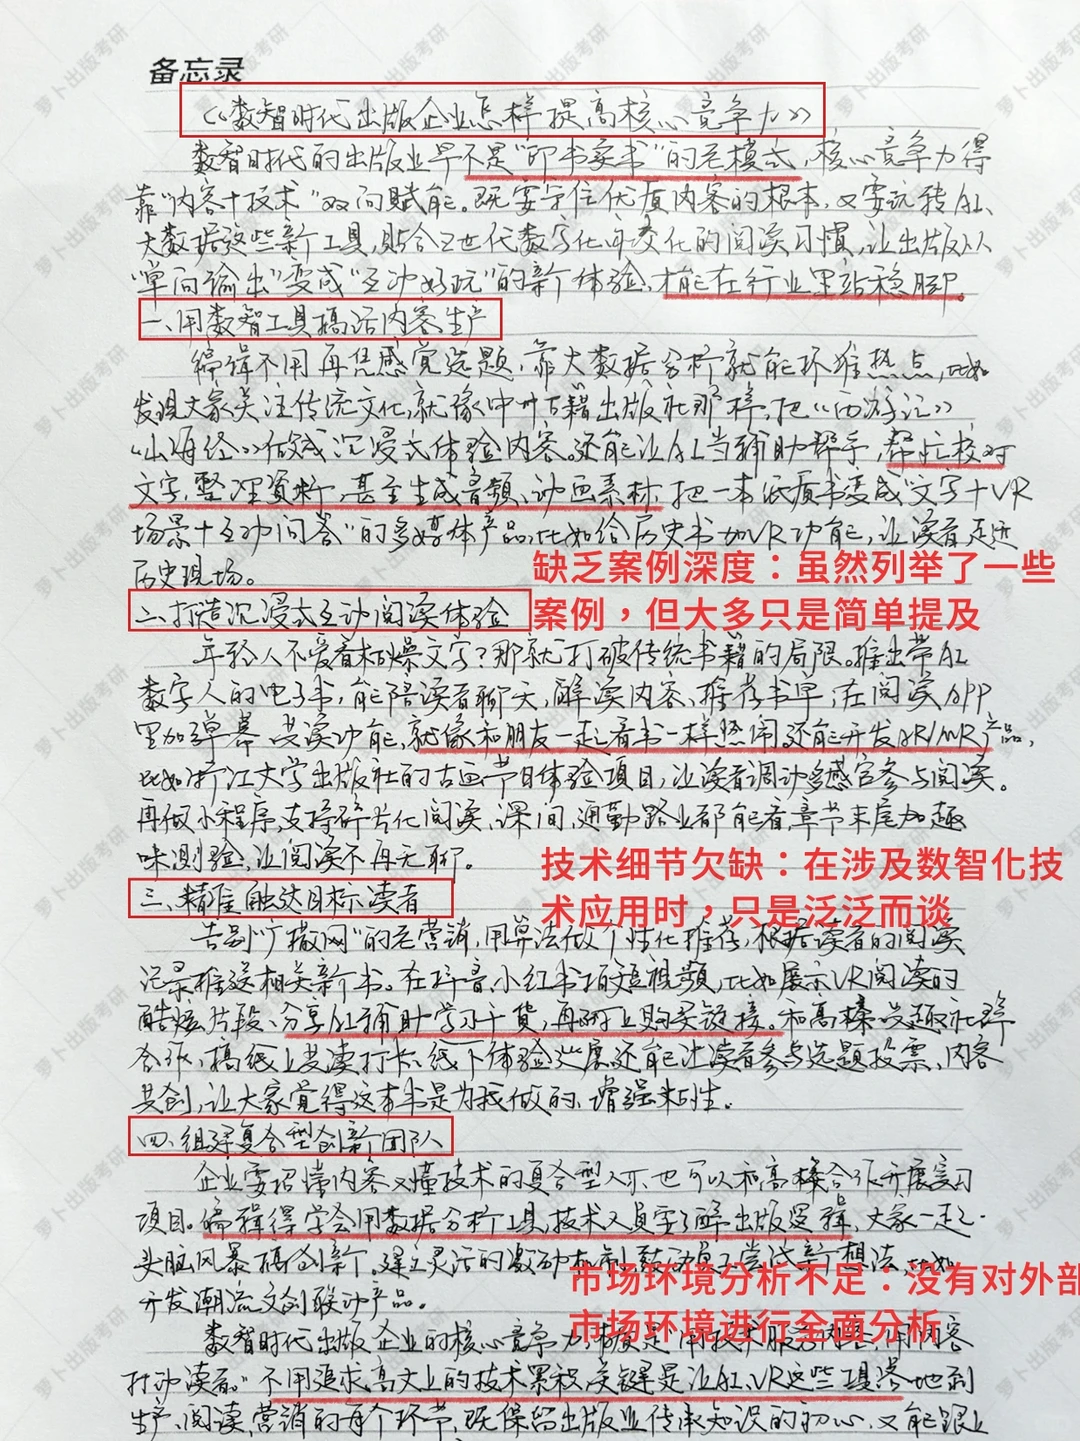 备忘录
《数智时代出版企业怎样提高核心竞争力》
数智时代的出版业早不是“印书卖书”的老模式，核心竞争力得
靠“内容+技术”双向赋能。既要守住优质内容的根本，又要玩转AI、
大数据这些新工具，贴合Z世代数字化变化的阅读习惯，让出版从
“单向输出”变成“互动好玩”的新体验，才能在行业里站稳脚。
一、用数智工具搞活内容生产
编辑不用再凭感觉选题，靠大数据分析就能抓准热点，比如
发现大家关注传统文化，就像中州古籍出版社那样，把《西游记》
《山海经》做成沉浸式体验内容。还能让AI当辅助帮手，帮忙校对
文字，整理资料，甚至生成音频、动画素材，把一本纸质书变成“文字+VR
场景+互动问答”的多媒体产品，比如给历史书加VR功能，让读者走进
历史现场。
缺乏案例深度：虽然列举了一些
案例，但大多只是简单提及
二、打造沉浸式互动阅读体验
年轻人不爱看枯燥文字？那就打破传统书籍的局限。推出带AI
数字人的电子书，能陪读者聊天，解读内容、推荐书单；在阅读APP
里加弹幕、共读功能，就像和朋友一起看书一样热闹，还能开发AR/MR产品，
比如浙江大学出版社的古画节目体验项目，让读者调动多感官参与阅读。
再做小程序，支持碎片化阅读，课间、通勤路上都能看，章节末尾加趣
味测验，让阅读不再无聊。
技术细节欠缺：在涉及数智化技
术应用时，只是泛泛而谈
三、精准触达目标读者
告别“广撒网”的老营销，用算法做个性化推荐，根据读者的阅读
记录推送相关新书。在抖音、小红书拍短视频，比如展示VR阅读的
酷炫片段、分享AI辅助学习干货，再附上购买链接。和高校、兴趣社群
合作，搞线上共读打卡、线下体验，还能让读者参与选题投票、内容
共创，让大家觉得这本书是为我做的，增强粘性。
四、组建复合型创新团队
企业要招懂内容又懂技术的复合型人才，也可以和高校合作开展实习
项目。编辑得学会用数据分析工具，技术人员学了解出版逻辑，大家一起
头脑风暴搞创新。建立灵活的激励机制，鼓励员工尝试新想法，比如
开发潮流文创联动产品。
市场环境分析不足：没有对外部
市场环境进行全面分析
数智时代出版企业的核心竞争力，本质是“用技术服务内容，用内容
打动读者。”不用追求高大上的技术累积，关键是让AI、VR这些真落地到
生产、阅读、营销的每个环节，既保留出版业传承知识的初心，又能跟上